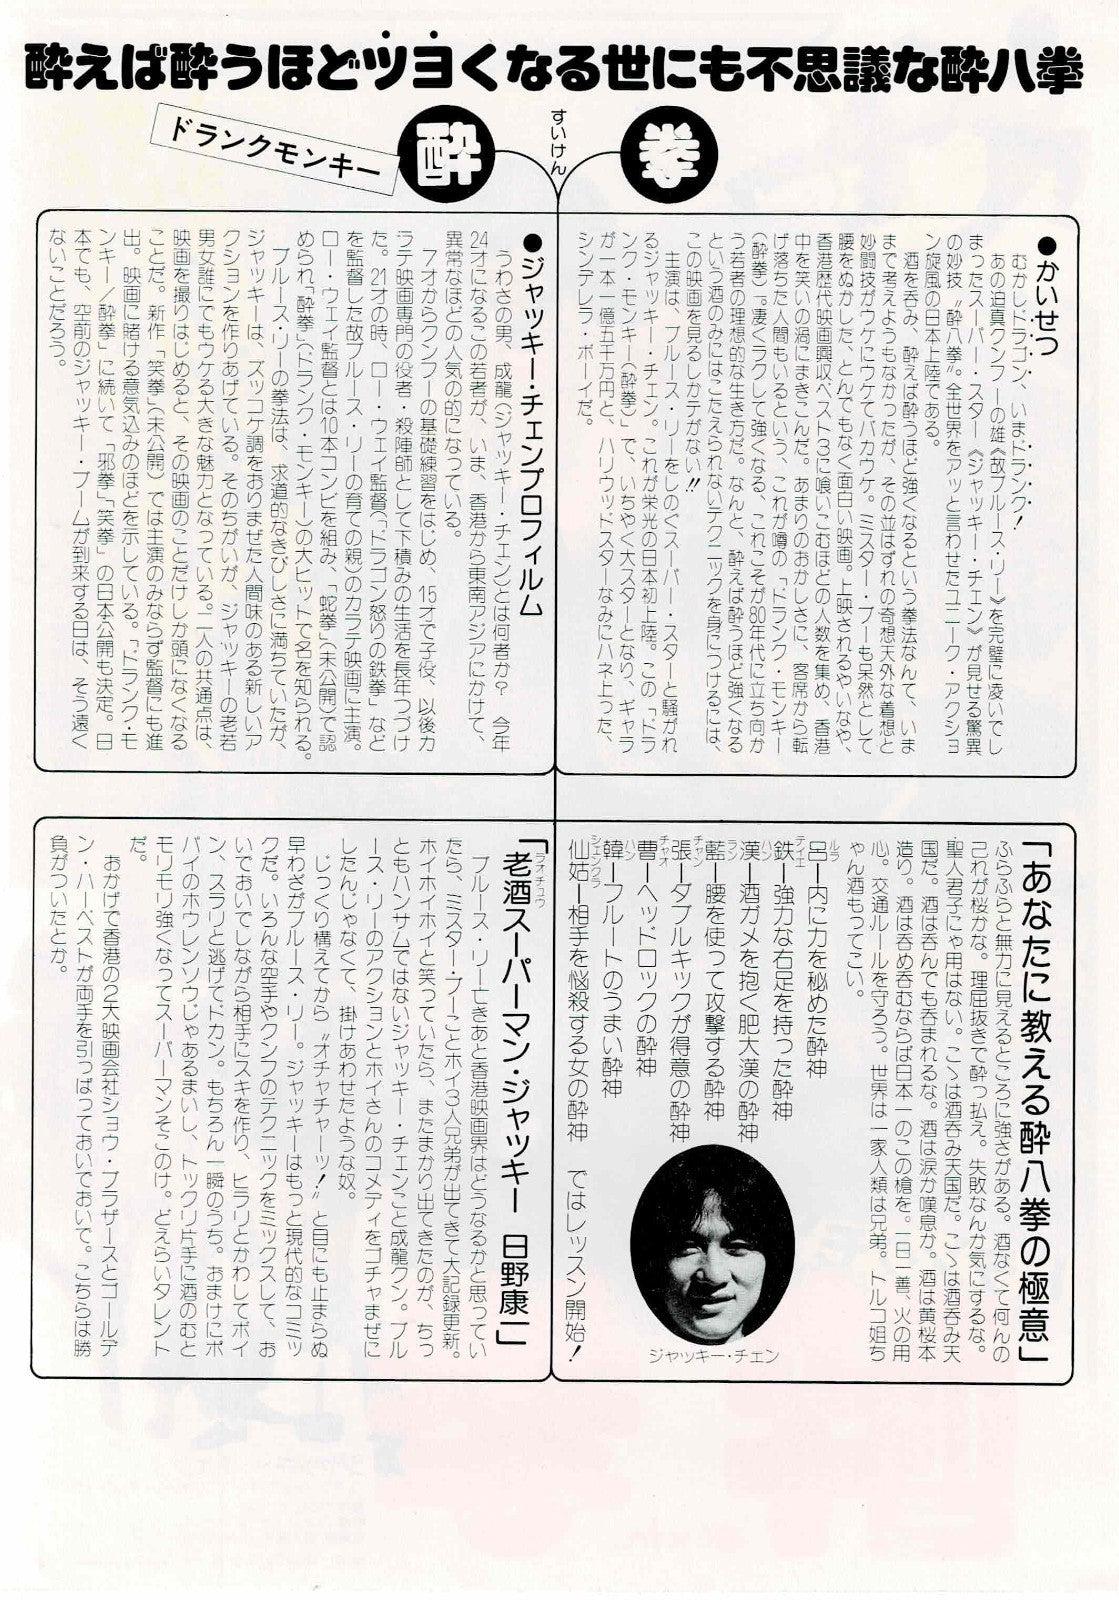 酔えば酔うほどツヨくなる世にも不思議な酔八拳
ドランクモンキー
酔
拳
すいけん
●かいせつ
むかしドラゴン、いまドランク!
あの迫真クンフーの雄《故ブルース・リー》を完璧に凌いでし
まったスーパー・スター《ジャッキー・チェン》が見せる驚異
の妙技〝酔八拳〟。全世界をアッと言わせたユニーク・アクショ
ン旋風の日本上陸である。
酒を呑み、酔えば酔うほど強くなるという拳法なんて、いま
まで考えようもなかったが、その並はずれの奇想天外な着想と
妙闘技がウケにウケてバカウケ。ミスター・ブーも呆然として
腰をぬかした、とんでもなく面白い映画。上映されるやいなや、
香港歴代映画興収ベスト3に喰いこむほどの人数を集め、香港
中を笑いの渦にまきこんだ。あまりのおかしさに、客席から転
げ落ちた人間もいるという、これが噂の「ドランク・モンキー
(酔拳)」『凄くラクして強くなる、これこそが80年代に立ち向か
う若者の理想的な生き方だ。なんと、酔えば酔うほど強くなる
という酒のみにはこたえられないテクニックを身につけるには、
この映画を見るしかテがない!!
主演は、ブルース・リーをしのぐスーパー・スターと騒がれ
るジャッキー・チェン。これが栄光の日本初上陸。この「ドラ
ンク・モンキー(酔拳)」で、いちやく大スターとなり、ギャラ
が一本一億五千万円と、ハリウッドスターなみにハネ上った、
シンデレラ・ボーイだ。
●ジャッキー・チェンプロフィルム
うわさの男、成龍(ジャッキー・チェン)とは何者か? 今年
24才になるこの若者が、いま、香港から東南アジアにかけて、
異常なほどの人気の的になっている。
7才からクンフーの基礎練習をはじめ、15才で子役、以後カ
ラテ映画専門の役者・殺陣師として下積みの生活を長年つづけ
た。21才の時、ロー・ウェイ監督(「ドラゴン怒りの鉄拳」など
を監督した故ブルース・リーの育ての親)のカラテ映画に主演。
ロー・ウェイ監督とは10本コンビを組み、「蛇拳」(未公開)で認
められ「酔拳」(ドランク・モンキー)の大ヒットで名を知られる。
ブルース・リーの拳法は、求道的なきびしさに満ちていたが、
ジャッキーは、ズッコケ調をおりまぜた人間味のある新しいア
クションを作りあげている。そのちがいが、ジャッキーの老若
男女誰にでもウケる大きな魅力となっている。二人の共通点は、
映画を撮りはじめると、その映画のことだけしか頭になくなる
ことだ。新作「笑拳」(未公開)では主演のみならず監督にも進
出。映画に賭ける意気込みのほどを示している。「ドランク・モ
ンキー/酔拳」に続いて「邪拳」「笑拳」の日本公開も決定。日
本でも、空前のジャッキー・ブームが到来する日は、そう遠く
ないことだろう。
「あなたに教える酔八拳の極意」
ふらふらと無力に見えるところに強さがある。酒なくて何んの
己れが桜かな。理屈抜きで酔っ払え。失敗なんか気にするな。
聖人君子にゃ用はない。こゝは酒呑み天国だ。こゝは酒呑み天
国だ。酒は呑んでも呑まれるな。酒は涙か嘆息か。酒は黄桜本
造り。酒は呑め呑むならば日本一のこの槍を。一日一善、火の用
心。交通ルールを守ろう。世界は一家人類は兄弟。トルコ姐ち
ゃん酒もってこい。
呂ー内に力を秘めた酔神
ルラ
鉄ー強力な右足を持った酔神
ティエ
漢ー酒ガメを抱く肥大漢の酔神
ハン
藍ー腰を使って攻撃する酔神
ラン
張ーダブルキックが得意の酔神
チャン
曹ーヘッドロックの酔神
チャオ
韓ーフルートのうまい酔神
ハン
仙姑ー相手を悩殺する女の酔神 ではレッスン開始!
シェンクラ
ジャッキー・チェン
「老酒スーパーマン・ジャッキー 日野康一」
ラオチュウ
ブルース・リー亡きあと香港映画界はどうなるかと思ってい
たら、ミスター・ブーことホイ3人兄弟が出てきて大記録更新。
ホイホイホイと笑っていたら、またまかり出てきたのが、ちっ
ともハンサムではないジャッキー・チェンこと成龍クン。ブル
ース・リーのアクションとホイさんのコメディをゴチャまぜに
したんじゃなくて、掛けあわせたような奴。
じっくり構えてから〝オチャチャーッ!〟と目にも止まらぬ
早わざがブルース・リー。ジャッキーはもっと現代的なコミッ
クだ。いろんな空手やクンフのテクニックをミックスして、お
いでおいでしながら相手にスキを作り、ヒラリとかわしてポイ
ン、スラリと逃げてドカン。もちろん一瞬のうち。おまけにポ
パイのホウレンソウじゃあるまいし、トックリ片手に酒のむと
モリモリ強くなってスーパーマンそこのけ。どえらいタレント
だ。
おかげで香港の2大映画会社ショウ・ブラザースとゴールデ
ン・ハーベストが両手を引っぱっておいでおいで。こちらは勝
負がついたとか。